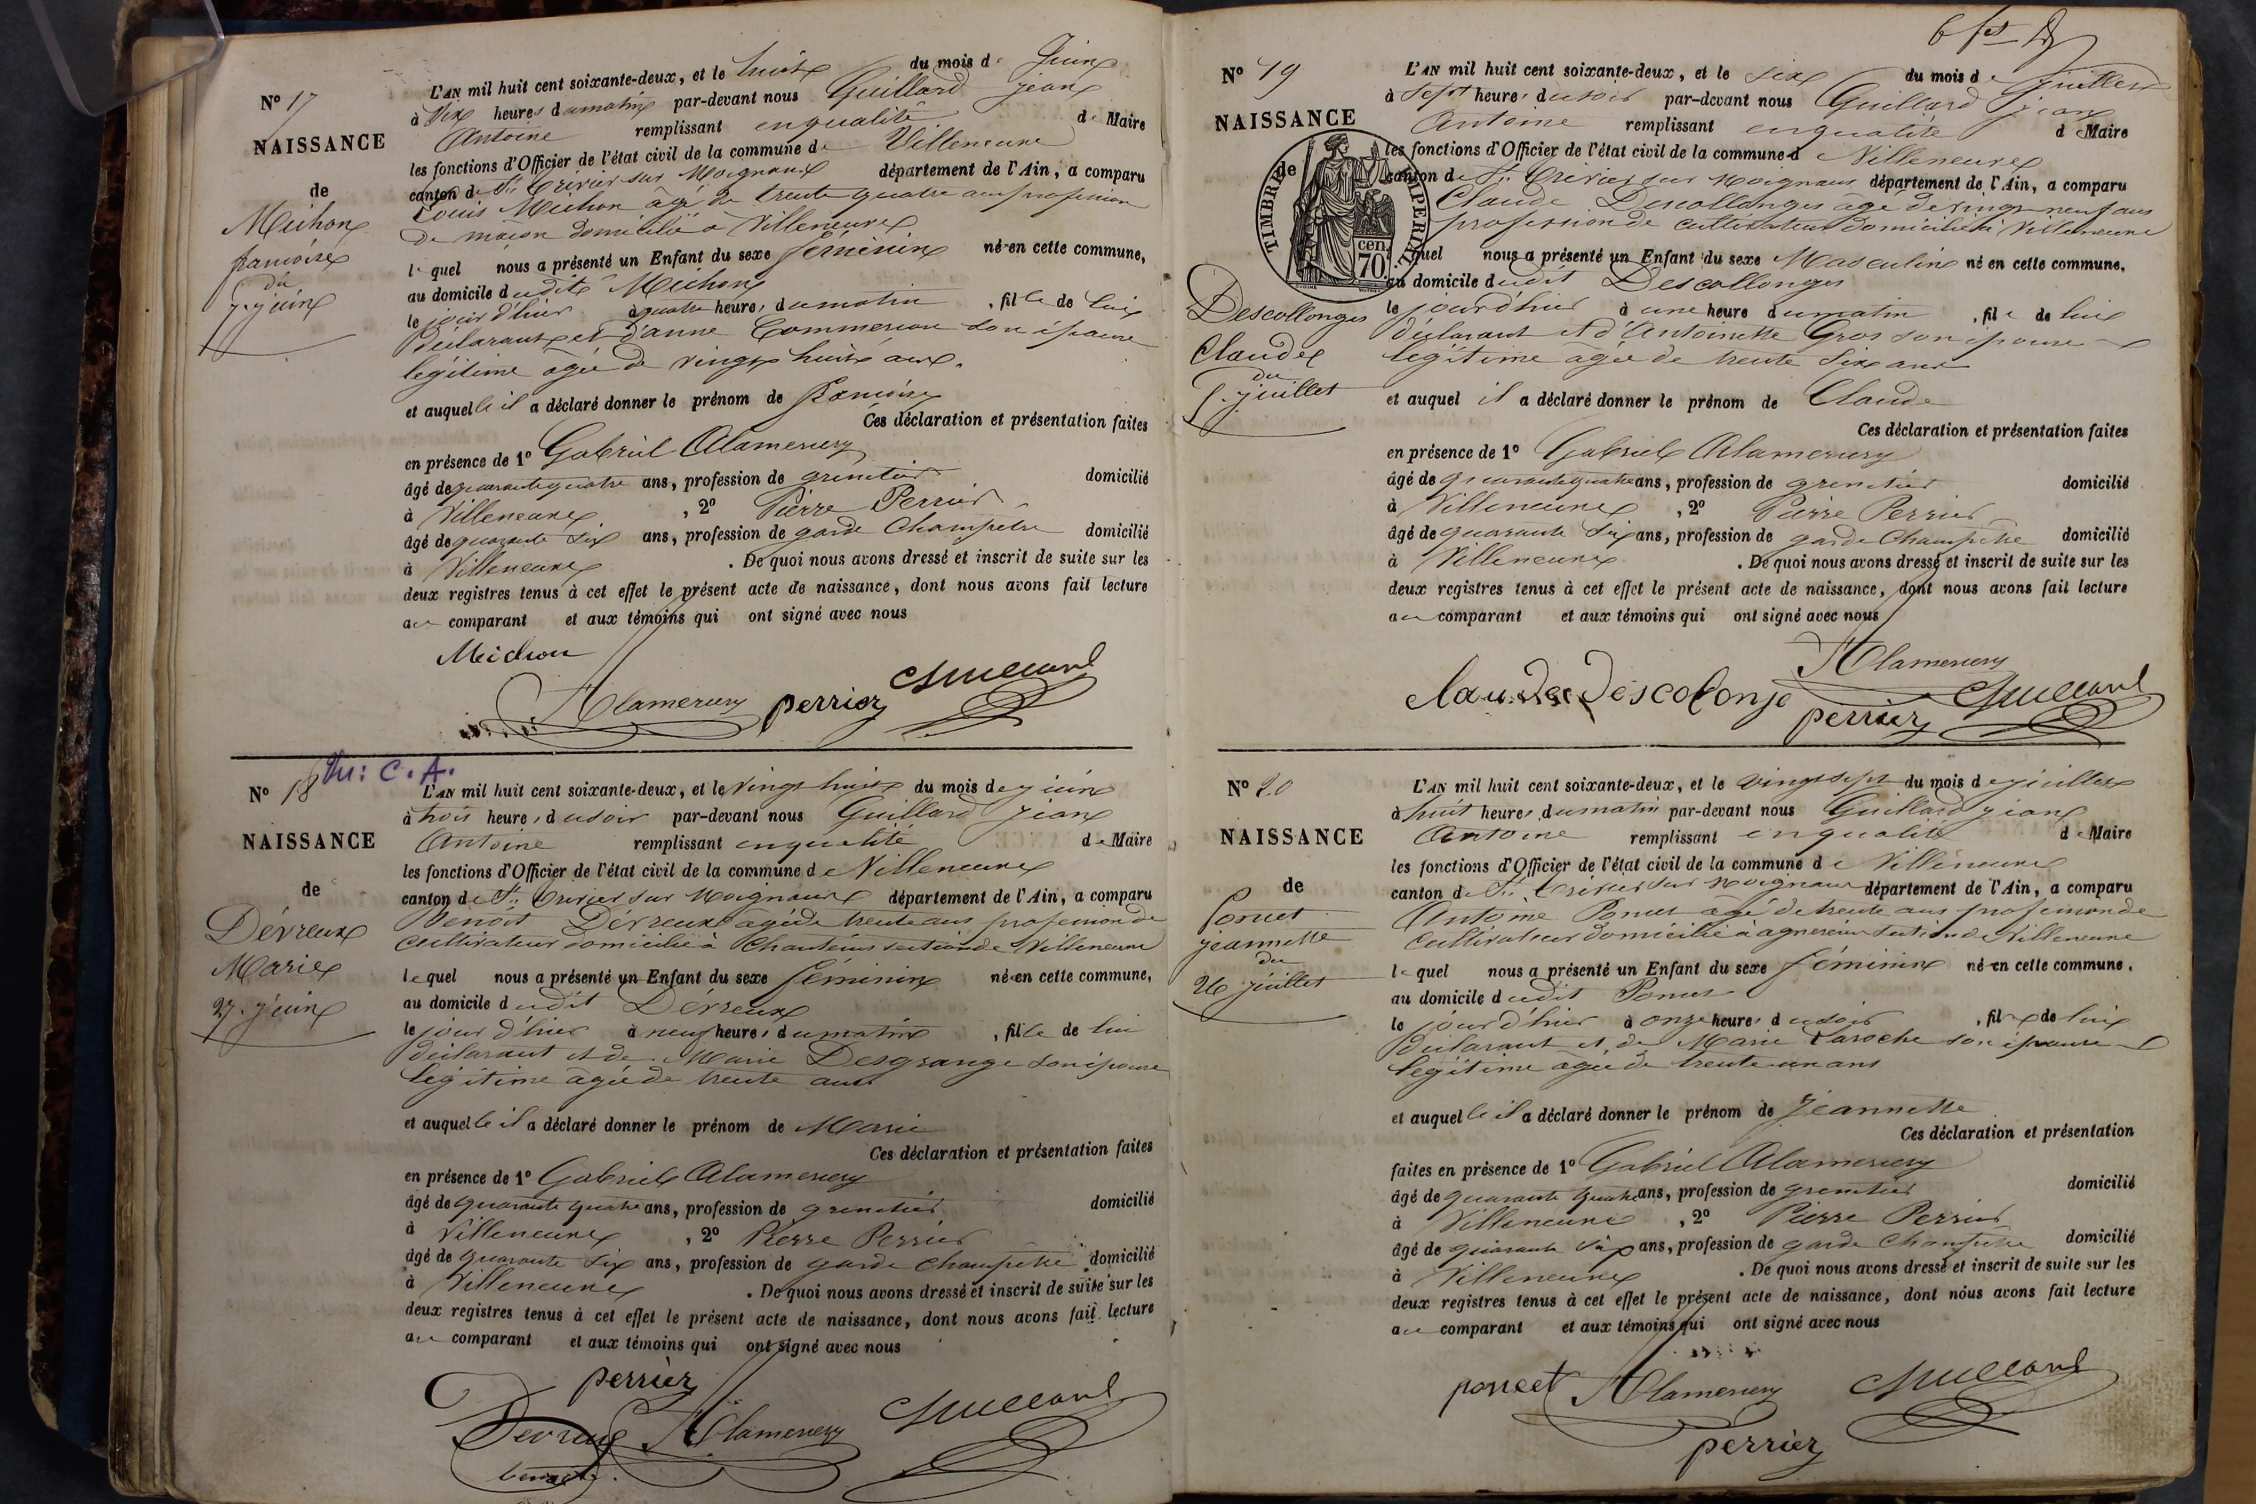 N° 17
NAISSANCE
de
Michon
françoise
du
7 juin
L'AN mil huit cent soixante-deux, et le huit du mois de Juin
à dix heures du matin par-devant nous Guillard jean
Antoine remplissant en qualité de Maire
les fonctions d'Officier de l'état civil de la commune de Villeneuve
canton de St Trivier sur Moignans département de l'Ain, a comparu
Louis Michon âgé de trente quatre ans profession
de maçon domicilié à Villeneuve
lequel nous a présenté un Enfant du sexe féminin né en cette commune,
au domicile dudit Michon
le jour d'hier à quatre heures du matin, fille de lui
déclarant et d'anne Commerson son épouse
légitime âgée de vingt huit ans.
et auquelle il a déclaré donner le prénom de françoise
Ces déclaration et présentation faites
en présence de 1° Gabriel Alamercery
âgé de quarante quatre ans, profession de grenetier domicilié
à Villeneuve, 2° Pierre Perrier
âgé de quarante six ans, profession de garde Champêtre domicilié
à Villeneuve. De quoi nous avons dressé et inscrit de suite sur les
deux registres tenus à cet effet le présent acte de naissance, dont nous avons fait lecture
au comparant et aux témoins qui ont signé avec nous
Michon
Alamercery perrier Guillard
N° 18 M: C. A.
NAISSANCE
de
Dévreux
Marie
27 juin
L'AN mil huit cent soixante-deux, et le vingt huit du mois de juin
à trois heures du soir par-devant nous Guillard Jean
Antoine remplissant en qualité de Maire
les fonctions d'Officier de l'état civil de la commune de Villeneuve
canton de St Trivier sur Moignans département de l'Ain, a comparu
Benoit Dévreux âgé de trente ans profession de
cultivateur domicilié à Chanteins section de Villeneuve
lequel nous a présenté un Enfant du sexe féminin né en cette commune,
au domicile dudit Dévreux
le jour d'hier à neuf heures du matin, fille de lui
déclarant et de Marie Desgrange son épouse
légitime âgée de trente ans
et auquelle il a déclaré donner le prénom de Marie
Ces déclaration et présentation faites
en présence de 1° Gabriel Alamercery
âgé de quarante quatre ans, profession de grenetier domicilié
à Villeneuve, 2° Pierre Perrier
âgé de quarante six ans, profession de garde champêtre domicilié
à Villeneuve. De quoi nous avons dressé et inscrit de suite sur les
deux registres tenus à cet effet le présent acte de naissance, dont nous avons fait lecture
au comparant et aux témoins qui ont signé avec nous
perrier
Devreux Alamercery Guillard
benoit
N° 19
NAISSANCE
de
TIMBRE IMPERIAL
cen.
70
Descollonges
Claude
du
5 juillet
L'AN mil huit cent soixante-deux, et le six du mois de Juillet
à Sept heures du soir par-devant nous Guillard jean
Antoine remplissant en qualité de Maire
les fonctions d'Officier de l'état civil de la commune de Villeneuve
canton de St Trivier sur Moignans département de l'Ain, a comparu
Claude Descollonges âgé de vingt neuf ans
profession de cultivateur domicilié à Villeneuve
lequel nous a présenté un Enfant du sexe Masculin né en cette commune,
au domicile dudit Descollonges
le jour d'hier à une heure du matin, fils de lui
déclarant et d'Antoinette Gros son épouse
légitime âgée de trente six ans
et auquel il a déclaré donner le prénom de Claude
Ces déclaration et présentation faites
en présence de 1° Gabriel Alamercery
âgé de quarante quatre ans, profession de grenetier domicilié
à Villeneuve, 2° Pierre Perrier
âgé de quarante six ans, profession de garde Champêtre domicilié
à Villeneuve. De quoi nous avons dressé et inscrit de suite sur les
deux registres tenus à cet effet le présent acte de naissance, dont nous avons fait lecture
au comparant et aux témoins qui ont signé avec nous
Alamercery
claude Descolonge Guillard
perrier
N° 20
NAISSANCE
de
Poncet
jeannette
du
26 juillet
L'AN mil huit cent soixante-deux, et le vingt sept du mois de juillet
à huit heures du matin par-devant nous Guillard jean
Antoine remplissant en qualité de Maire
les fonctions d'Officier de l'état civil de la commune de Villeneuve
canton de St Trivier sur Moignans département de l'Ain, a comparu
Antoine Poncet âgé de trente ans profession de
cultivateur domicilié à agnereins section de Villeneuve
lequel nous a présenté un Enfant du sexe féminin né en cette commune,
au domicile dudit Poncet
le jour d'hier à onze heures du soir, fille de lui
déclarant et de Marie Laroche son épouse
légitime âgée de trente un ans
et auquelle il a déclaré donner le prénom de Jeannette
Ces déclaration et présentation
faites en présence de 1° Gabriel Alamercery
âgé de quarante quatre ans, profession de grenetier domicilié
à Villeneuve, 2° Pierre Perrier
âgé de quarante six ans, profession de garde Champêtre domicilié
à Villeneuve. De quoi nous avons dressé et inscrit de suite sur les
deux registres tenus à cet effet le présent acte de naissance, dont nous avons fait lecture
au comparant et aux témoins qui ont signé avec nous
poncet Alamercery Guillard
perrier